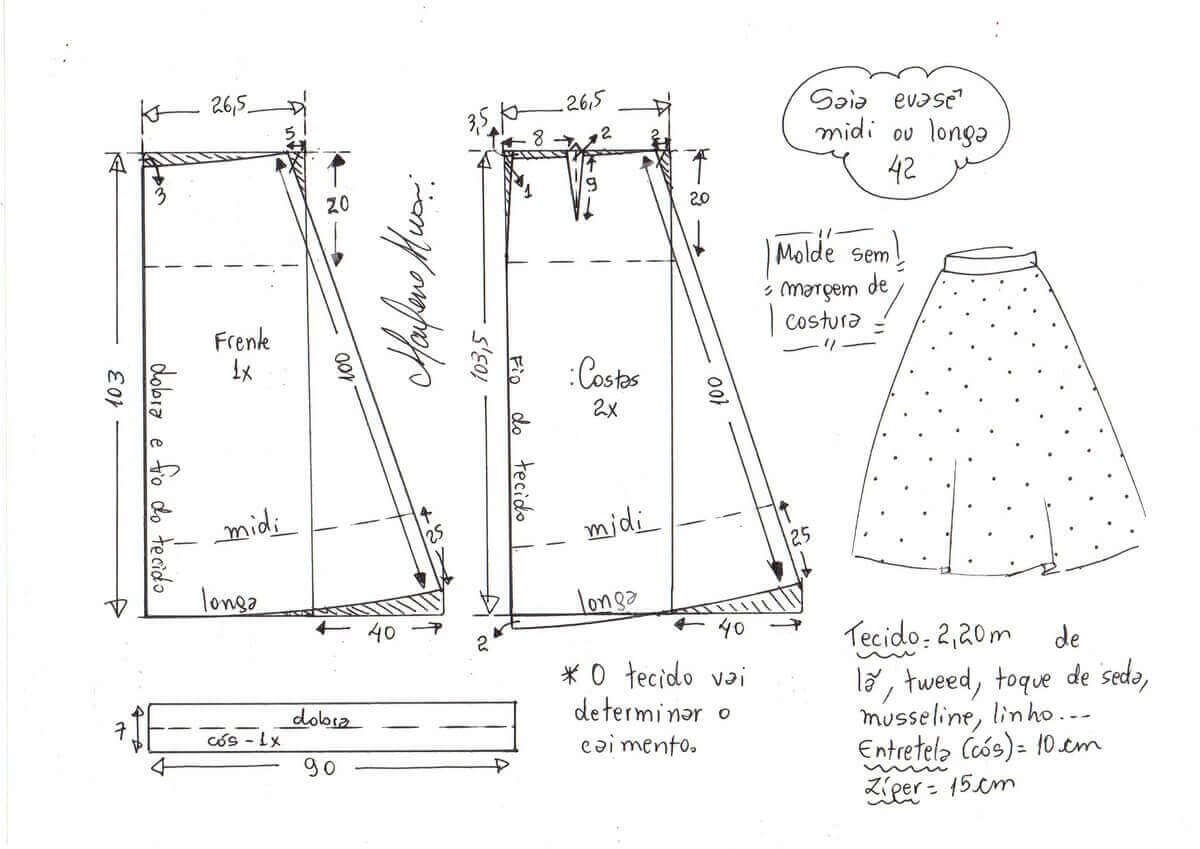 26,5
5
3
20
103
Frente
1x
dobra e fio do tecido
100
midi
25
longa
40
3,5
26,5
8
2
2
1
9
20
103,5
Fio do tecido
:Costas
2x
100
midi
25
longa
2
40
Saia evasê
midi ou longa
42
Molde sem
margem de
costura
7
dobra
cós - 1x
90
* O tecido vai
determinar o
caimento.
Tecido = 2,20m de
lã, tweed, toque de seda,
musseline, linho...
Entretela (cós) = 10 cm
Zíper = 15 cm